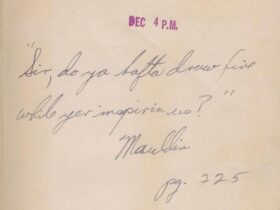 DEC 4 P.M.
"Sir, do ya hafta draw fire
while yer inspirin us?"
Mauldin
pg. 225